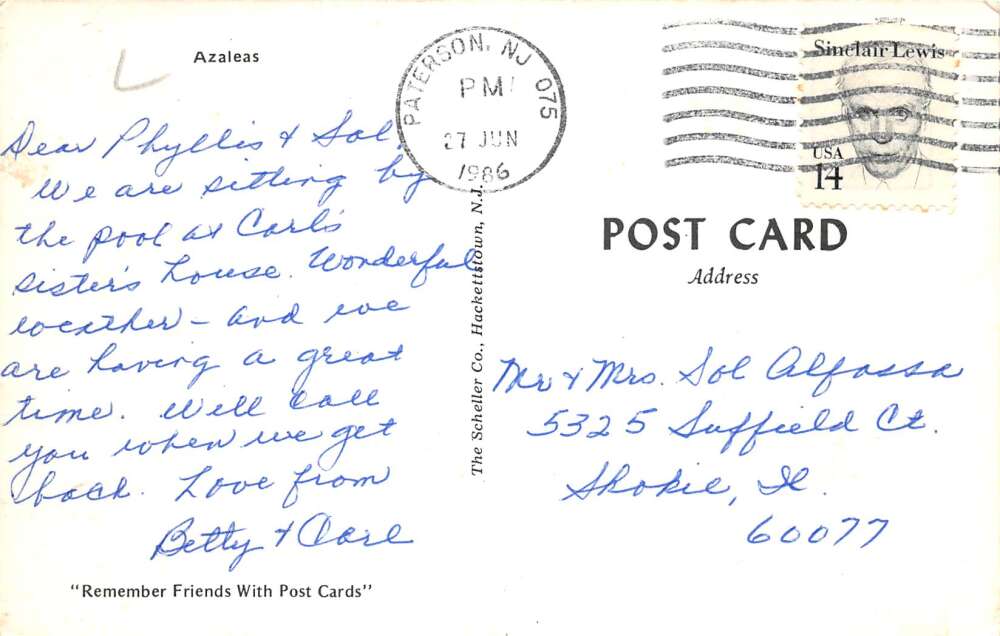 Azaleas
Dear Phyllis & Sol,
We are sitting by
the pool at Carl's
sister's house. Wonderful
weather - and we
are having a great
time. Will call
you when we get
back. Love from
Betty & Carl
"Remember Friends With Post Cards"
The Scheller Co., Hackettstown, N.J.
PATERSON, NJ 075
PM
27 JUN
1986
Sinclair Lewis
USA
14
POST CARD
Address
Mr & Mrs. Sol Alfassa
5325 Suffield Ct.
Skokie, Il.
60077